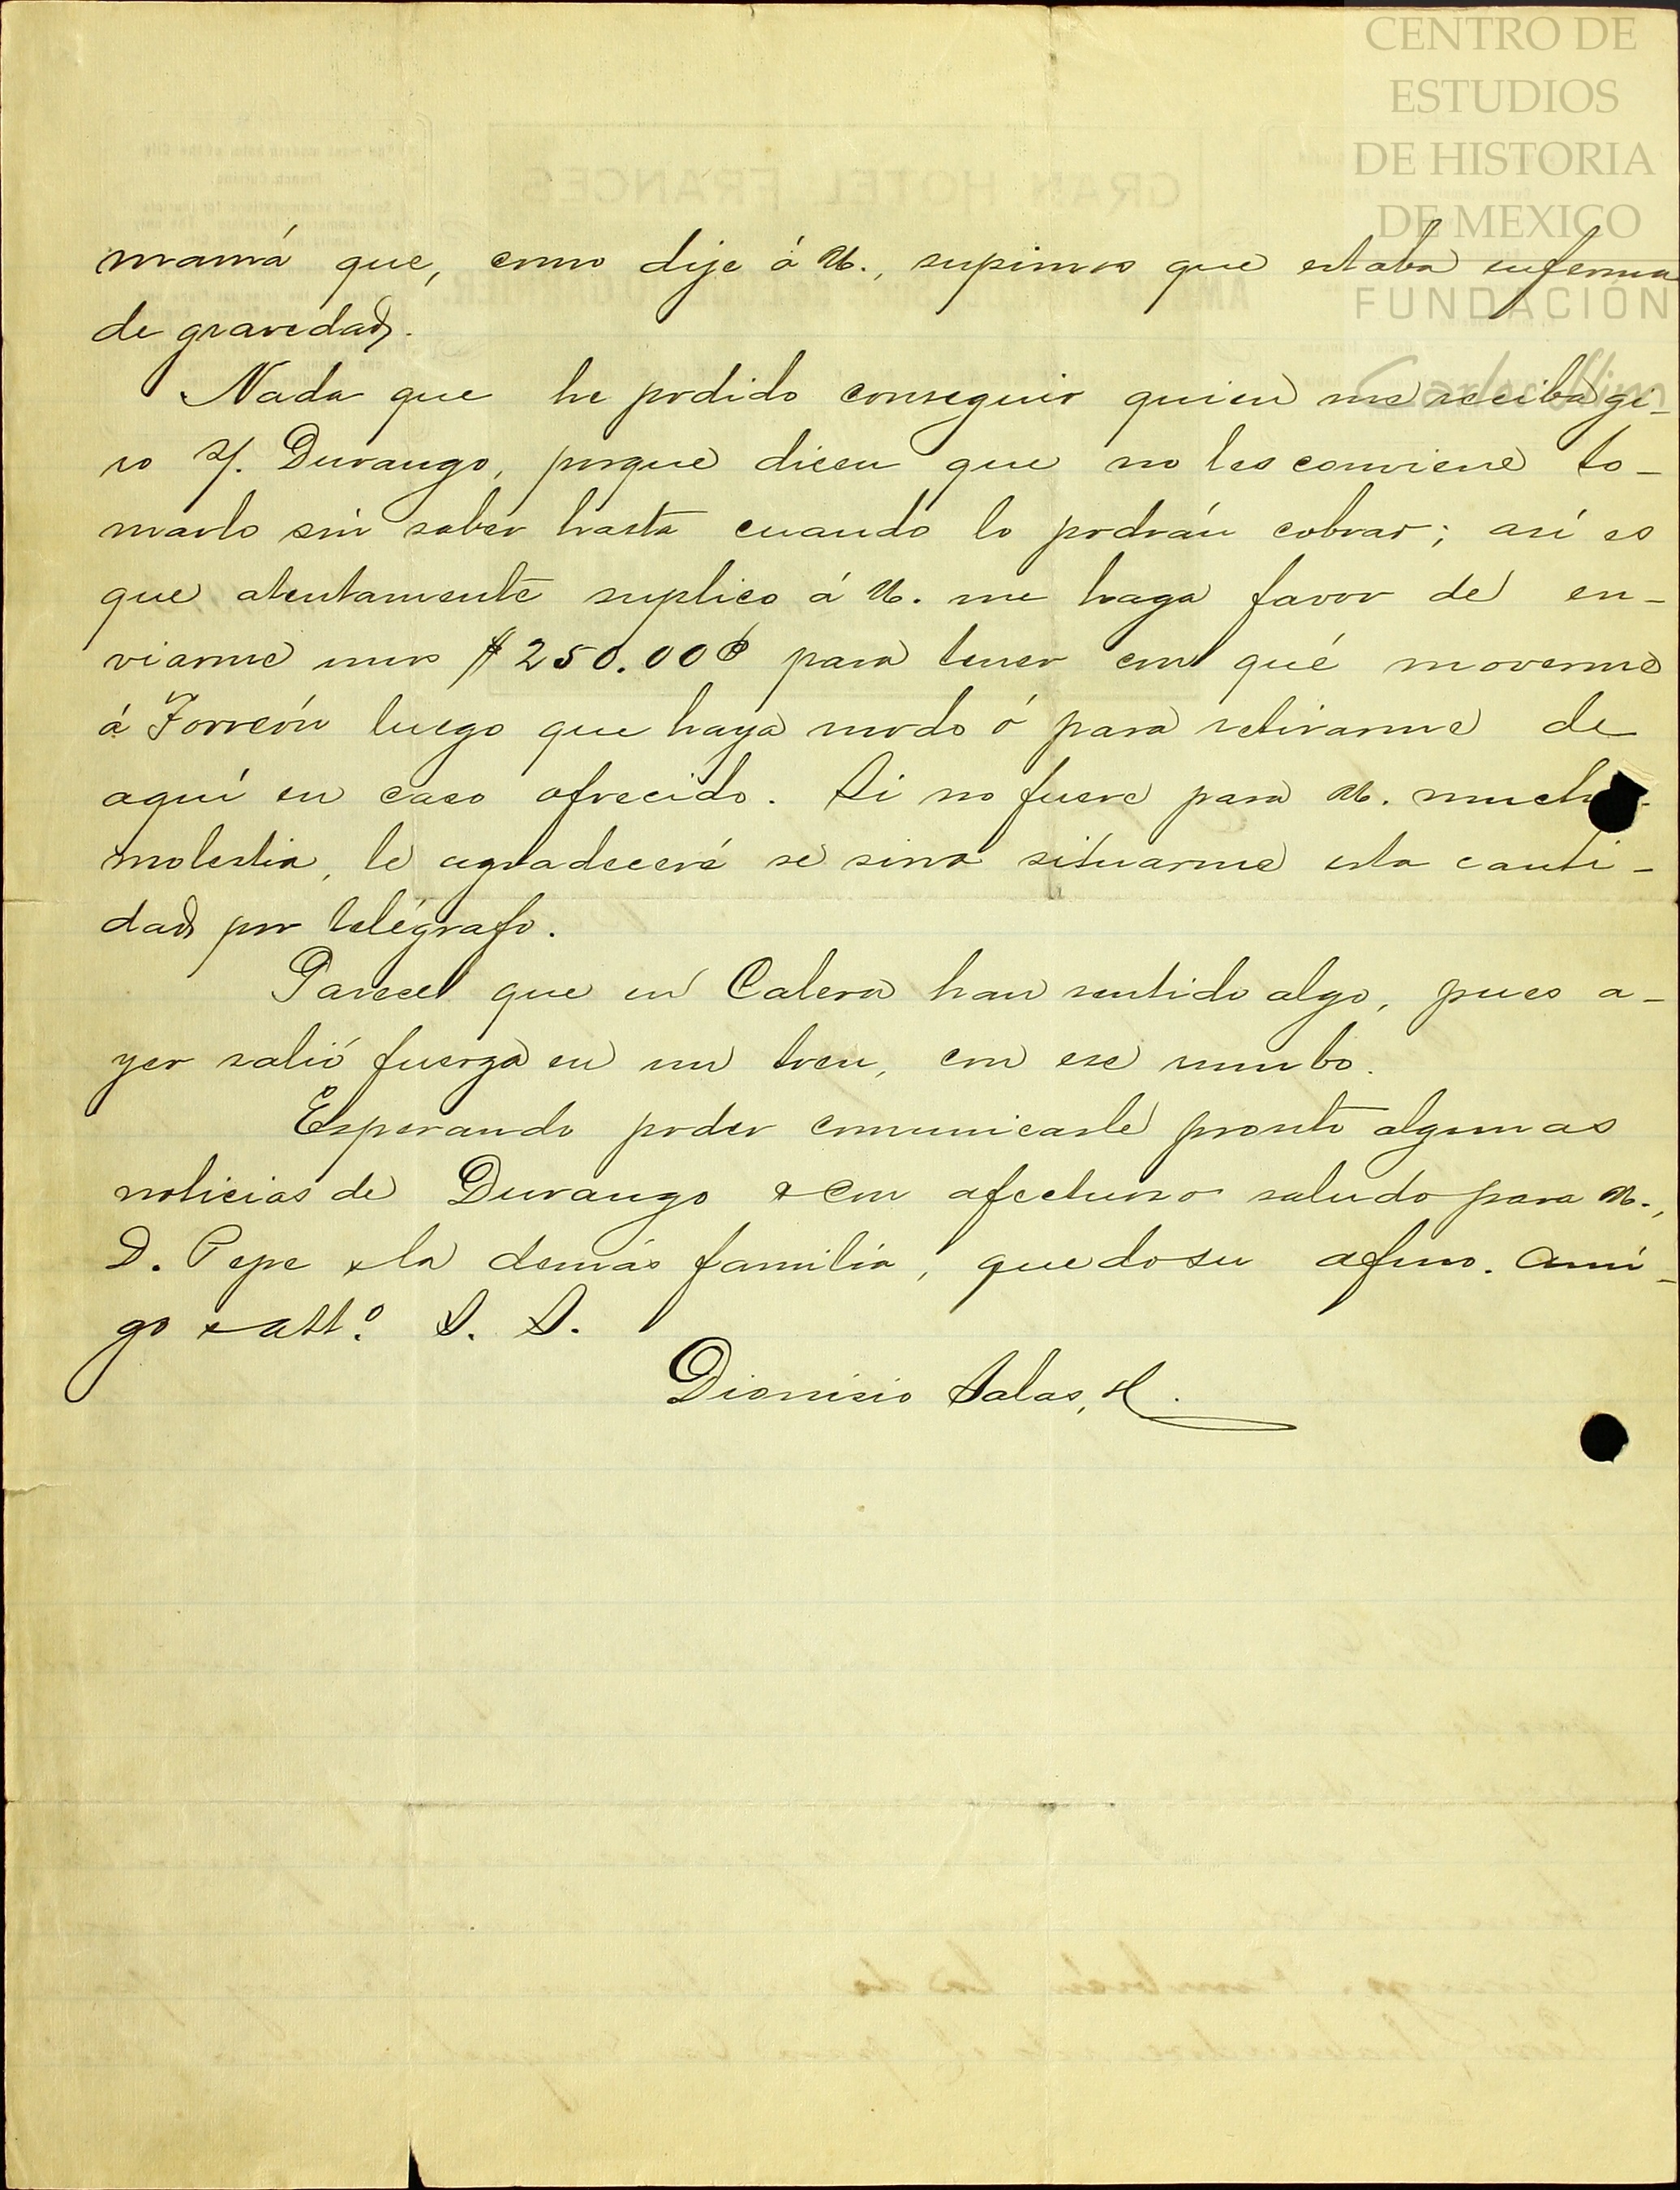 CENTRO DE
ESTUDIOS
DE HISTORIA
DE MEXICO
FUNDACIÓN
Carlos Slim
GRAN HOTEL FRANCES
mamá que, como dije á U., supimos que estaba enferma
de gravedad.
Nada que he podido conseguir quien me reciba gi-
ro s/. Durango, porque dicen que no les conviene to-
marlo sin saber hasta cuando lo podrán cobrar; así es
que atentamente suplico á U. me haga favor de en-
viarme unos $250.00 para tener con qué moverme
á Torreón luego que haya modo ó para retirarme de
aquí en caso ofrecido. Si no fuere para U. mucha
molestia, le agradeceré se sirva situarme esta canti-
dad por telégrafo.
Parece que en Calera han sentido algo, pues a-
yer salió fuerza en un tren, con ese rumbo.
Esperando poder comunicarle pronto algunas
noticias de Durango & con afectuoso saludo para U.,
D. Pepe & la demás familia, quedo su afmo. ami-
go & att.º S. S.
Dionisio Salas, H.